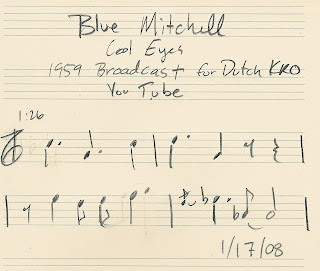 Blue Mitchell
Cool Eyes
1959 Broadcast for Dutch KRO
You Tube
1:26
1/17/08